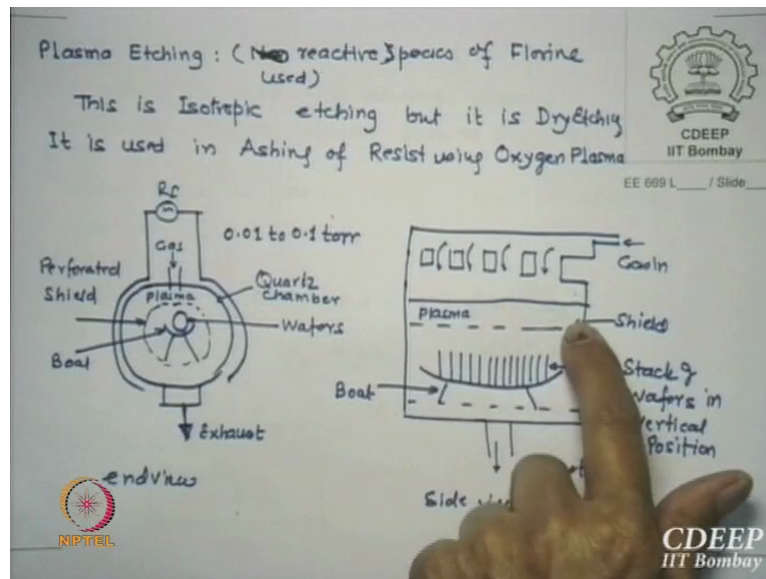 Plasma Etching : ( reactive Species of Florine
used)
This is Isotropic etching but it is Dry Etching
It is used in Ashing of Resist using Oxygen Plasma
CDEEP
IIT Bombay
EE 669 L____ / Slide____
Rf
Gas
0.01 to 0.1 torr
Perforated
Shield
Plasma
Quartz
chamber
Wafers
Boat
Exhaust
end view
Gas In
Plasma
Shield
Boat
Stack of
Wafers in
Vertical
Position
Side
NPTEL
CDEEP
IIT Bombay